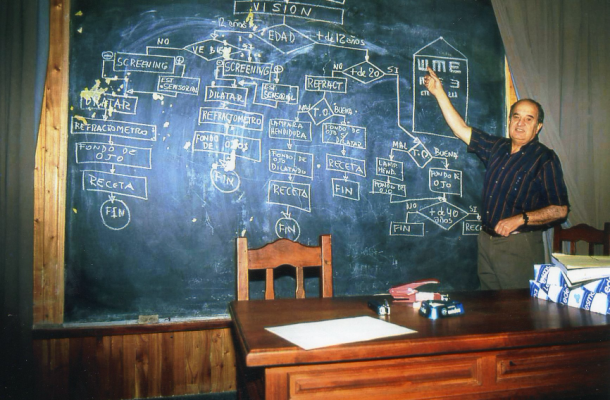 VISION
12 años
EDAD
+ de 12 años
NO
VE BIEN
SCREENING
SCREENING
EST. SENSORIAL
EST. SENSORIAL
DILATAR
DILATAR
REFRACTOMETRO
REFRACTOMETRO
FONDO DE OJO
FONDO DE
RECETA
FIN
FIN
REFRACT
NO
+ de 20
SI
T.O.
BUENA
LAMPARA HENDIDURA
FONDO DE OJO DILATADO
FONDO OJO DILATADO
RECETA
RECETA
FIN
FIN
MAL
T.O.
BUENA
LAMP HEND
FONDO DE OJO
FONDO DE OJO
NO
+ de 40 años
SI
FIN
RECE
W M E
3